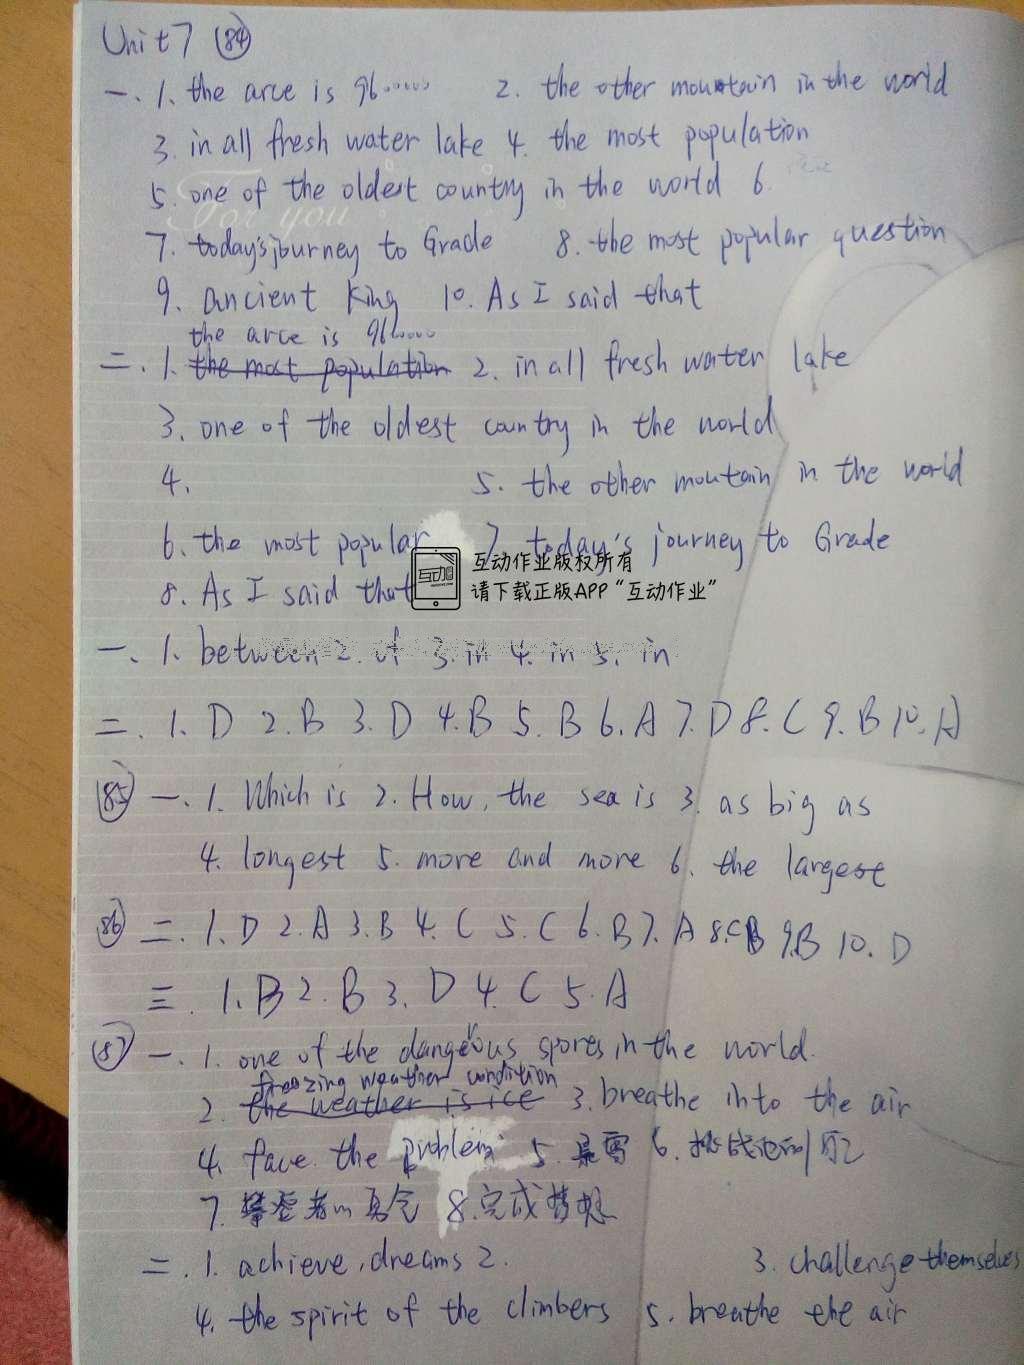 Unit 7 84
一. 1. the arce is 9600000 2. the other mountain in the world
3. in all fresh water lake 4. the most population
5. one of the oldest country in the world 6.
For you
7. today's journey to Grade 8. the most popular question
9. ancient King 10. As I said that
the arce is 9600000
二. 1. the most population 2. in all fresh water lake
3. one of the oldest country in the world
4. 5. the other mountain in the world
6. the most popular 7. today's journey to Grade
互动作业版权所有
8. As I said that
请下载正版APP“互动作业”
一. 1. between 2. of 3. in 4. in 5. in
二. 1. D 2. B 3. D 4. B 5. B 6. A 7. D 8. C 9. B 10. A
85 一. 1. Which is 2. How, the sea is 3. as big as
4. longest 5. more and more 6. the largest
86 二. 1. D 2. A 3. B 4. C 5. C 6. B 7. A 8. B 9. B 10. D
三. 1. B 2. B 3. D 4. C 5. A
87 一. 1. one of the dangerous spores in the world.
freezing weather condition
2. the weather is ice 3. breathe into the air
4. face the problem 5. 暴雪 6. 挑战
7. 攀登者 8. 完成梦想
二. 1. achieve, dreams 2. 3. challenge themselves
4. the spirit of the climbers 5. breathe the air